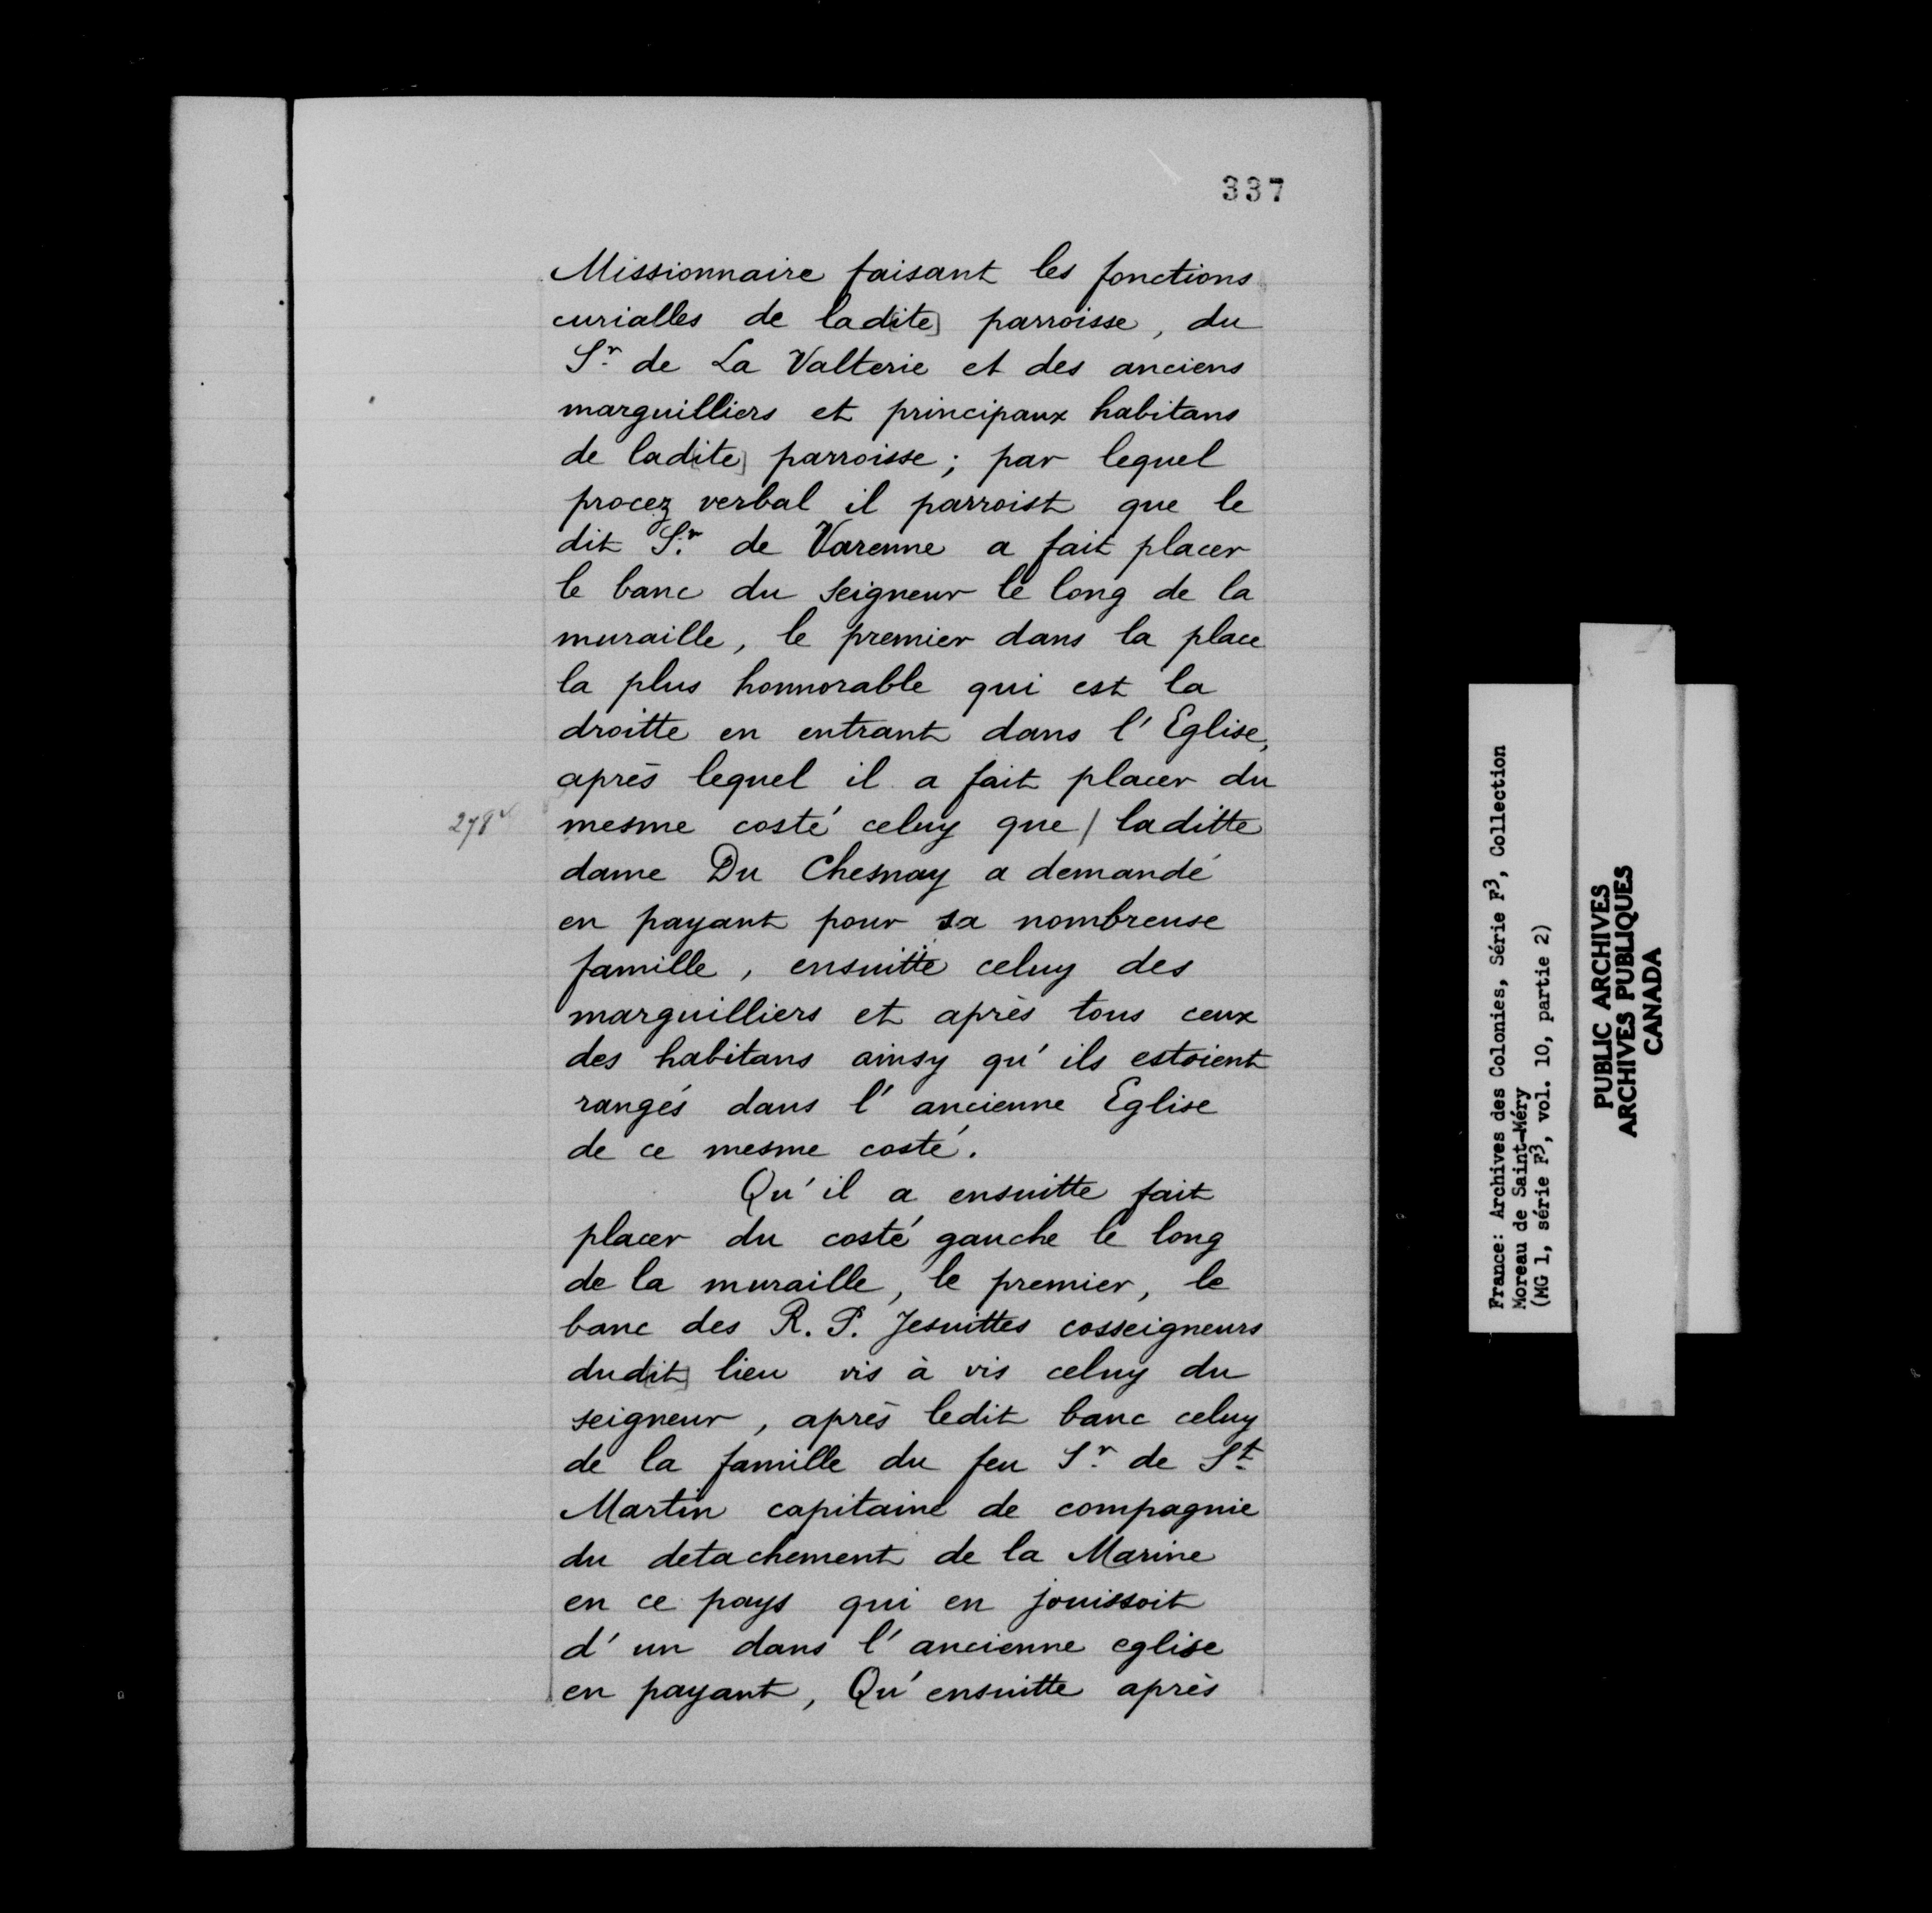 337
Missionnaire faisant les fonctions
curialles de lad[ite] parroisse, du
Sr. de La Valterie et des anciens
marguilliers et principaux habitans
de lad[ite] parroisse; par lequel
procez verbal il parroist que le
dit Sr. de Varenne a fait placer
le banc du seigneur le long de la
muraille, le premier dans la place
la plus honnorable qui est la
droitte en entrant dans l'Eglise,
après lequel il a fait placer du
278v mesme costé celuy que / laditte
dame Du Chesnay a demandé
en payant pour sa nombreuse
famille, ensuitte celuy des
marguilliers et après tous ceux
des habitans ainsy qu'ils estoient
rangés dans l'ancienne Eglise
de ce mesme costé.
Qu'il a ensuitte fait
placer du costé gauche le long
de la muraille, le premier, le
banc des R. P. Jesuittes cosseigneurs
dud[it] lieu vis à vis celuy du
seigneur, après ledit banc celuy
de la famille du feu Sr. de St.
Martin capitaine de compagnie
du detachement de la Marine
en ce pays qui en jouissoit
d'un dans l'ancienne eglise
en payant, Qu'ensuitte après
France: Archives des Colonies, Série F3, Collection
Moreau de Saint-Méry
(MG 1, série F3, vol. 10, partie 2)
PUBLIC ARCHIVES
ARCHIVES PUBLIQUES
CANADA